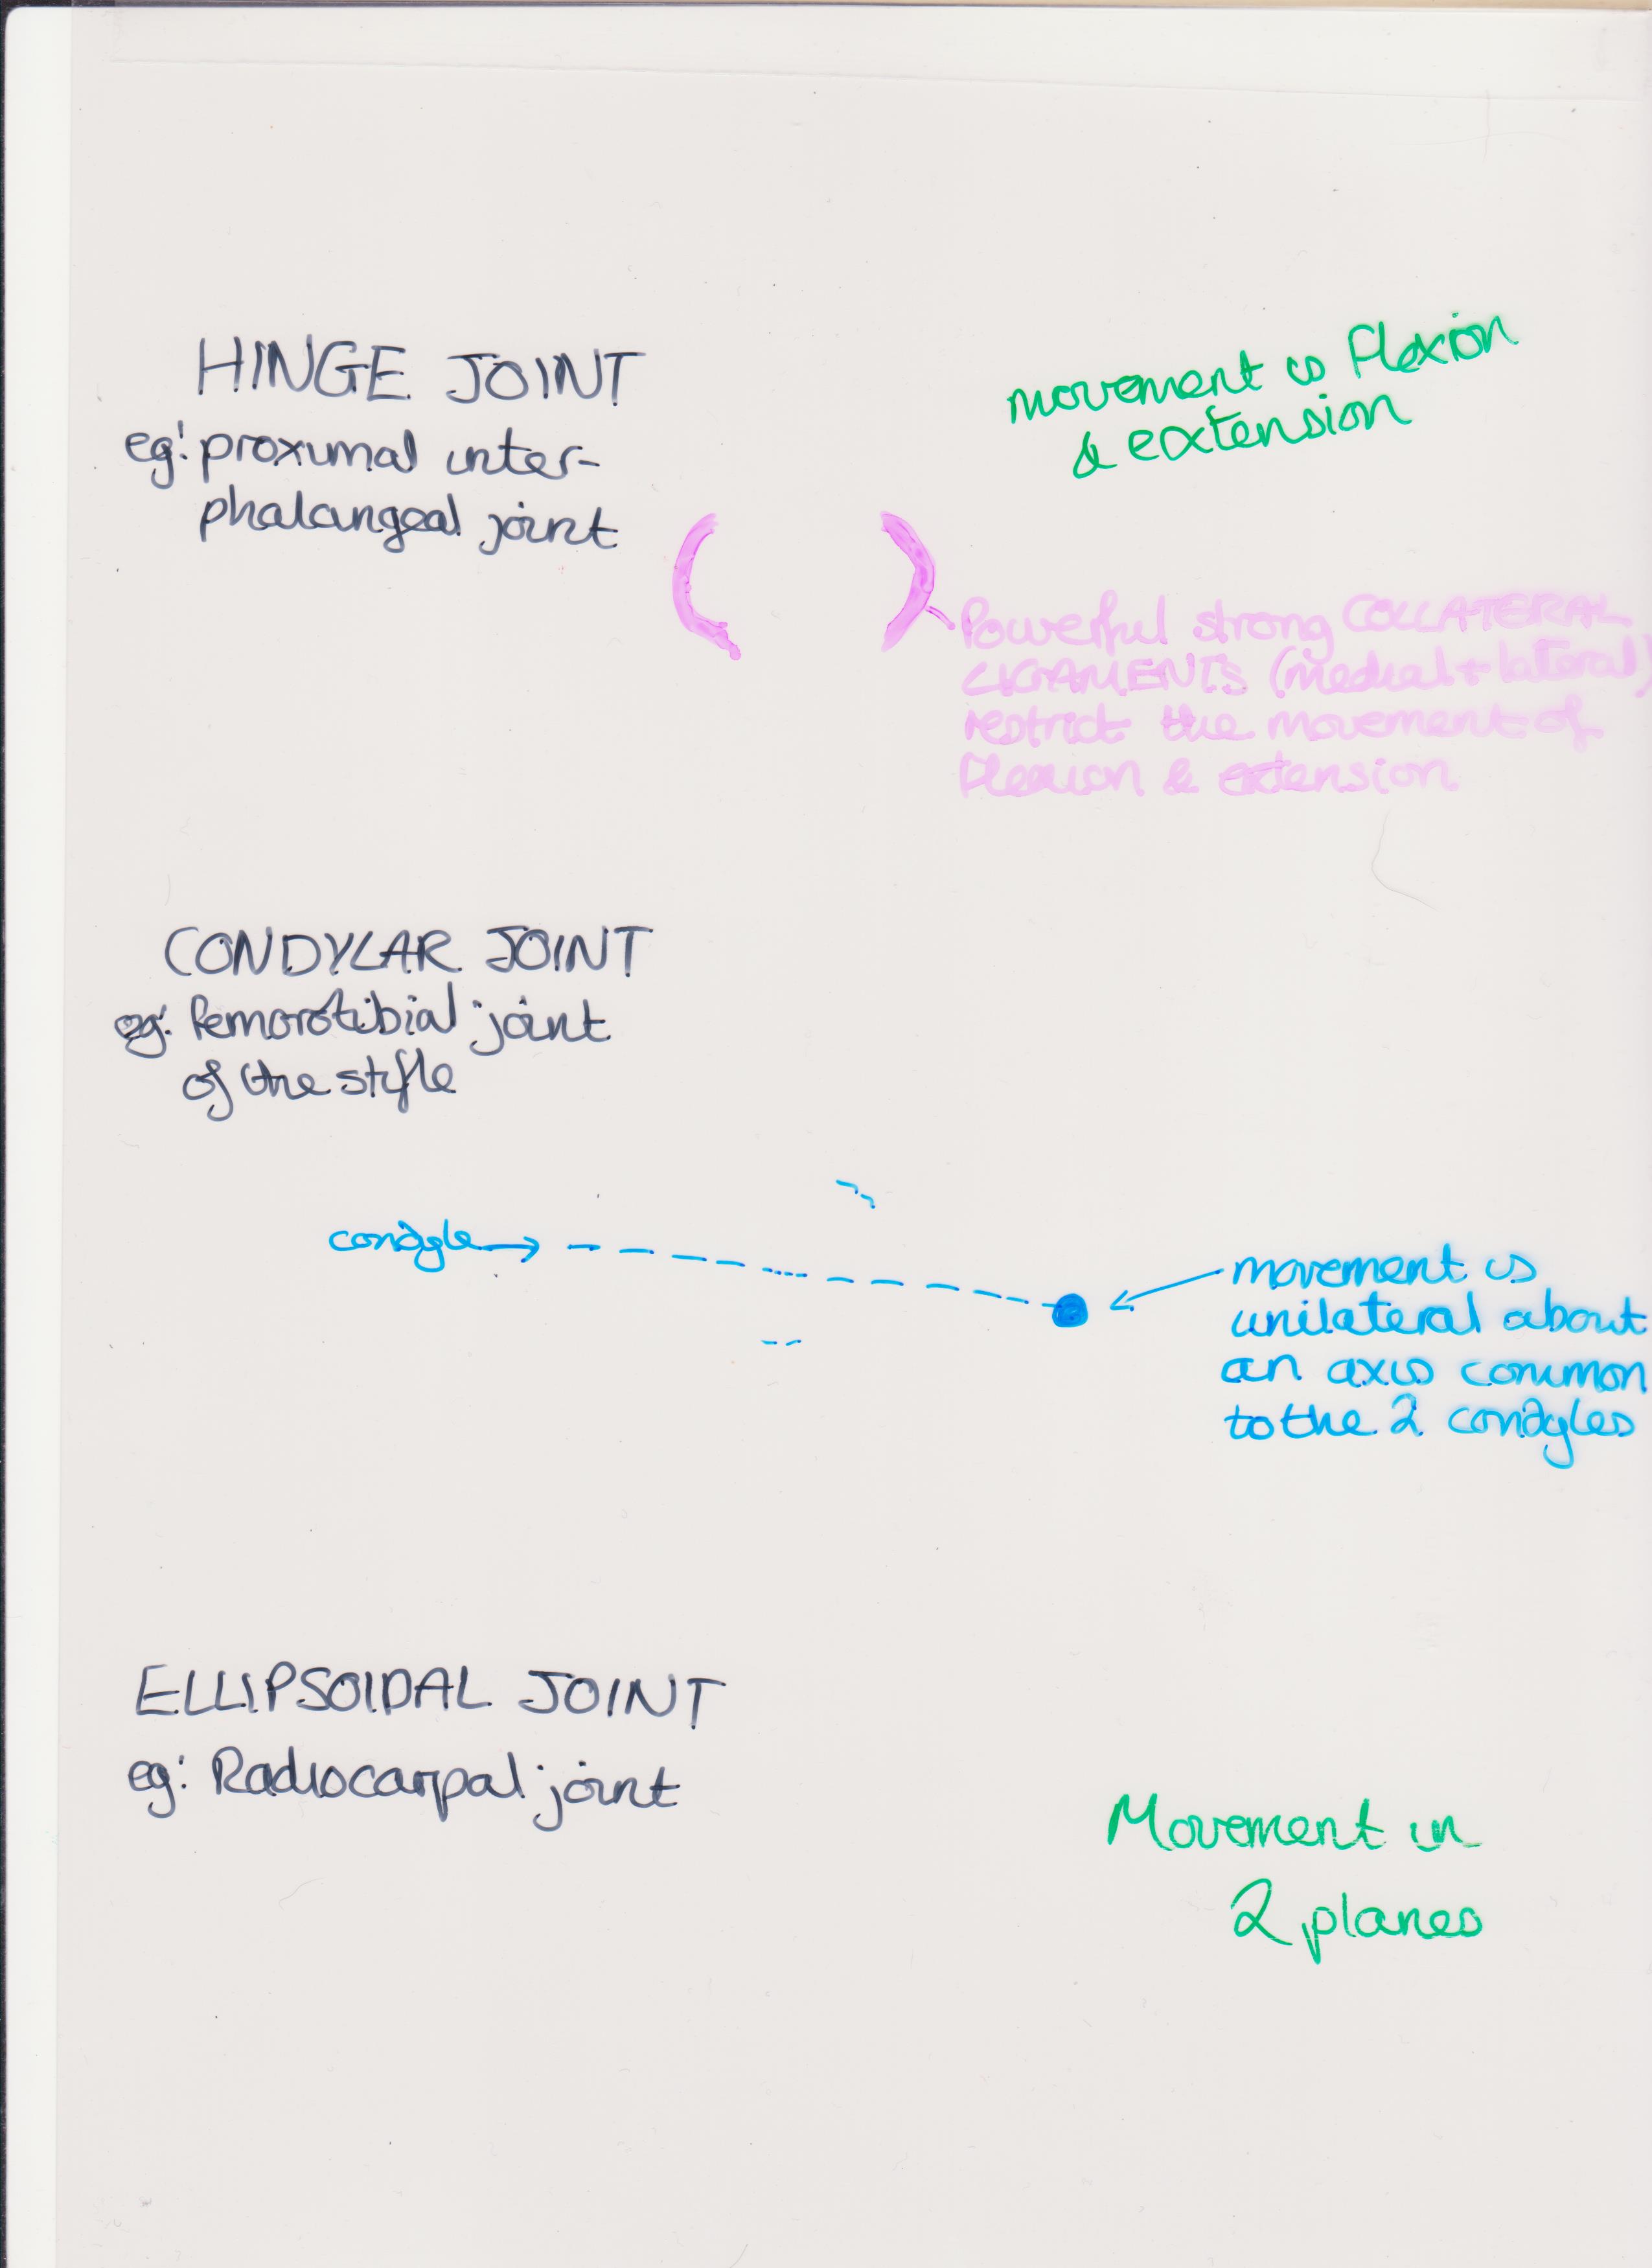 HINGE JOINT
eg: proximal inter-
phalangeal joint
movement is flexion
& extension
Powerful strong COLLATERAL
LIGAMENTS (medial + lateral)
restrict the movement of
flexion & extension
CONDYLAR JOINT
eg: femorotibial joint
of the stifle
condyle
movement is
unilateral about
an axis common
to the 2 condyles
ELLIPSOIDAL JOINT
eg: Radiocarpal joint
Movement in
2 planes